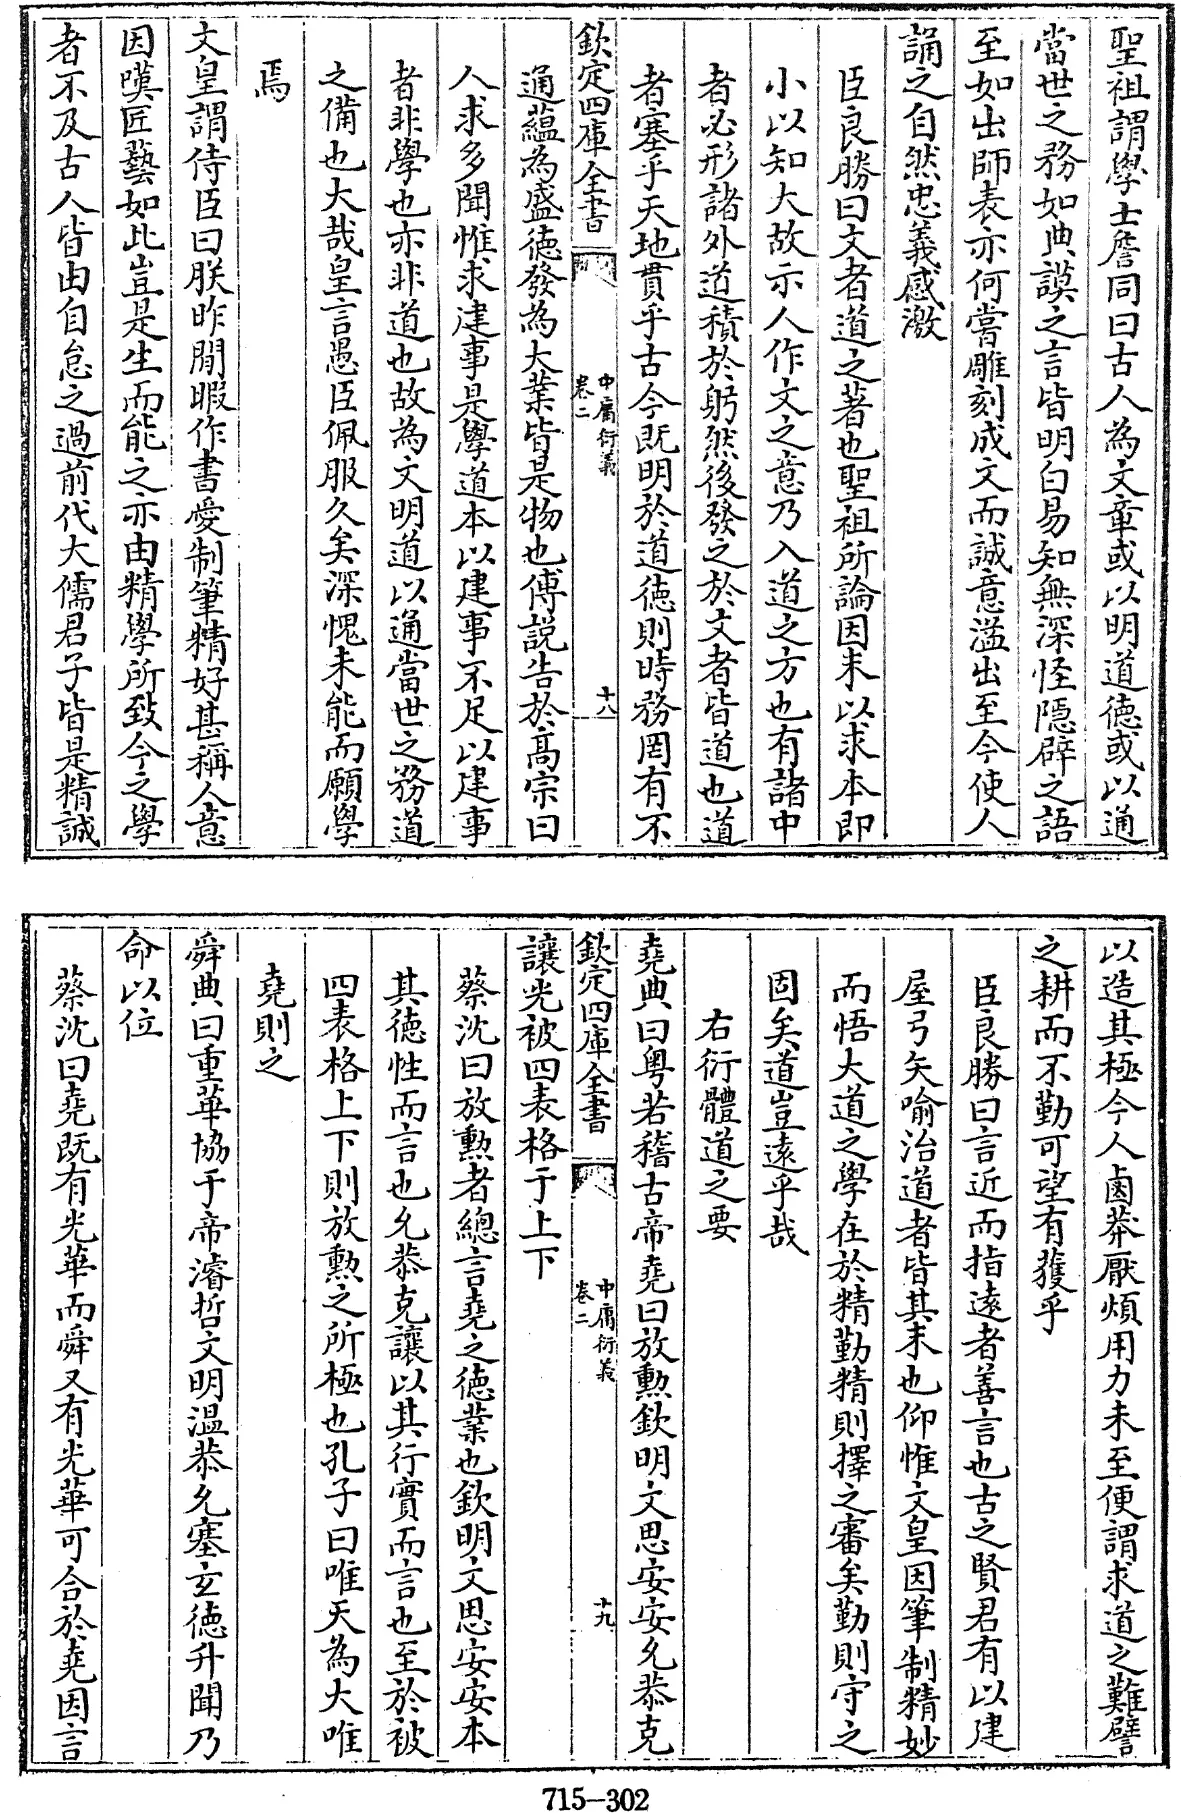 聖祖謂學士詹同曰古人為文章或以明道德或以通
當世之務如典謨之言皆明白易知無深怪隠辟之語
至如出師表亦何嘗雕刻成文而誠意溢出至今使人
誦之自然忠義感激
臣良勝曰文者道之著也聖祖所論因末以求本即
小以知大故示人作文之意乃入道之方也有諸中
者必形諸外道積於躬然後發之於文者皆道也道
者塞乎天地貫乎古今既明於道徳則時務罔有不
欽定四庫全書
中庸衍義
卷二
十八
通蘊為盛徳發為大業皆是物也傅説告於髙宗曰
人求多聞惟求建事是學道本以建事不足以建事
者非學也亦非道也故為文明道以通當世之務道
之備也大哉皇言愚臣佩服久矣深愧未能而願學
焉
文皇謂侍臣曰朕昨閒暇作書愛制筆精好甚稱人意
因嘆匠藝如此豈是生而能之亦由精學所致今之學
者不及古人皆由自怠之過前代大儒君子皆是精誠
以造其極今人鹵莽厭煩用力未至便謂求道之難譬
之耕而不勤可望有獲乎
臣良勝曰言近而指遠者善言也古之賢君有以建
屋弓矢喻治道者皆其末也仰惟文皇因筆制精妙
而悟大道之學在於精勤精則擇之審矣勤則守之
固矣道豈遠乎哉
右衍體道之要
堯典曰粤若稽古帝堯曰放勲欽明文思安安允恭克
欽定四庫全書
中庸衍義
卷二
十九
讓光被四表格于上下
蔡沈曰放勲者總言堯之徳業也欽明文思安安本
其徳性而言也允恭克讓以其行實而言也至於被
四表格上下則放勲之所極也孔子曰唯天為大唯
堯則之
舜典曰重華協于帝濬哲文明温恭允塞玄徳升聞乃
命以位
蔡沈曰堯既有光華而舜又有光華可合於堯因言
715-302